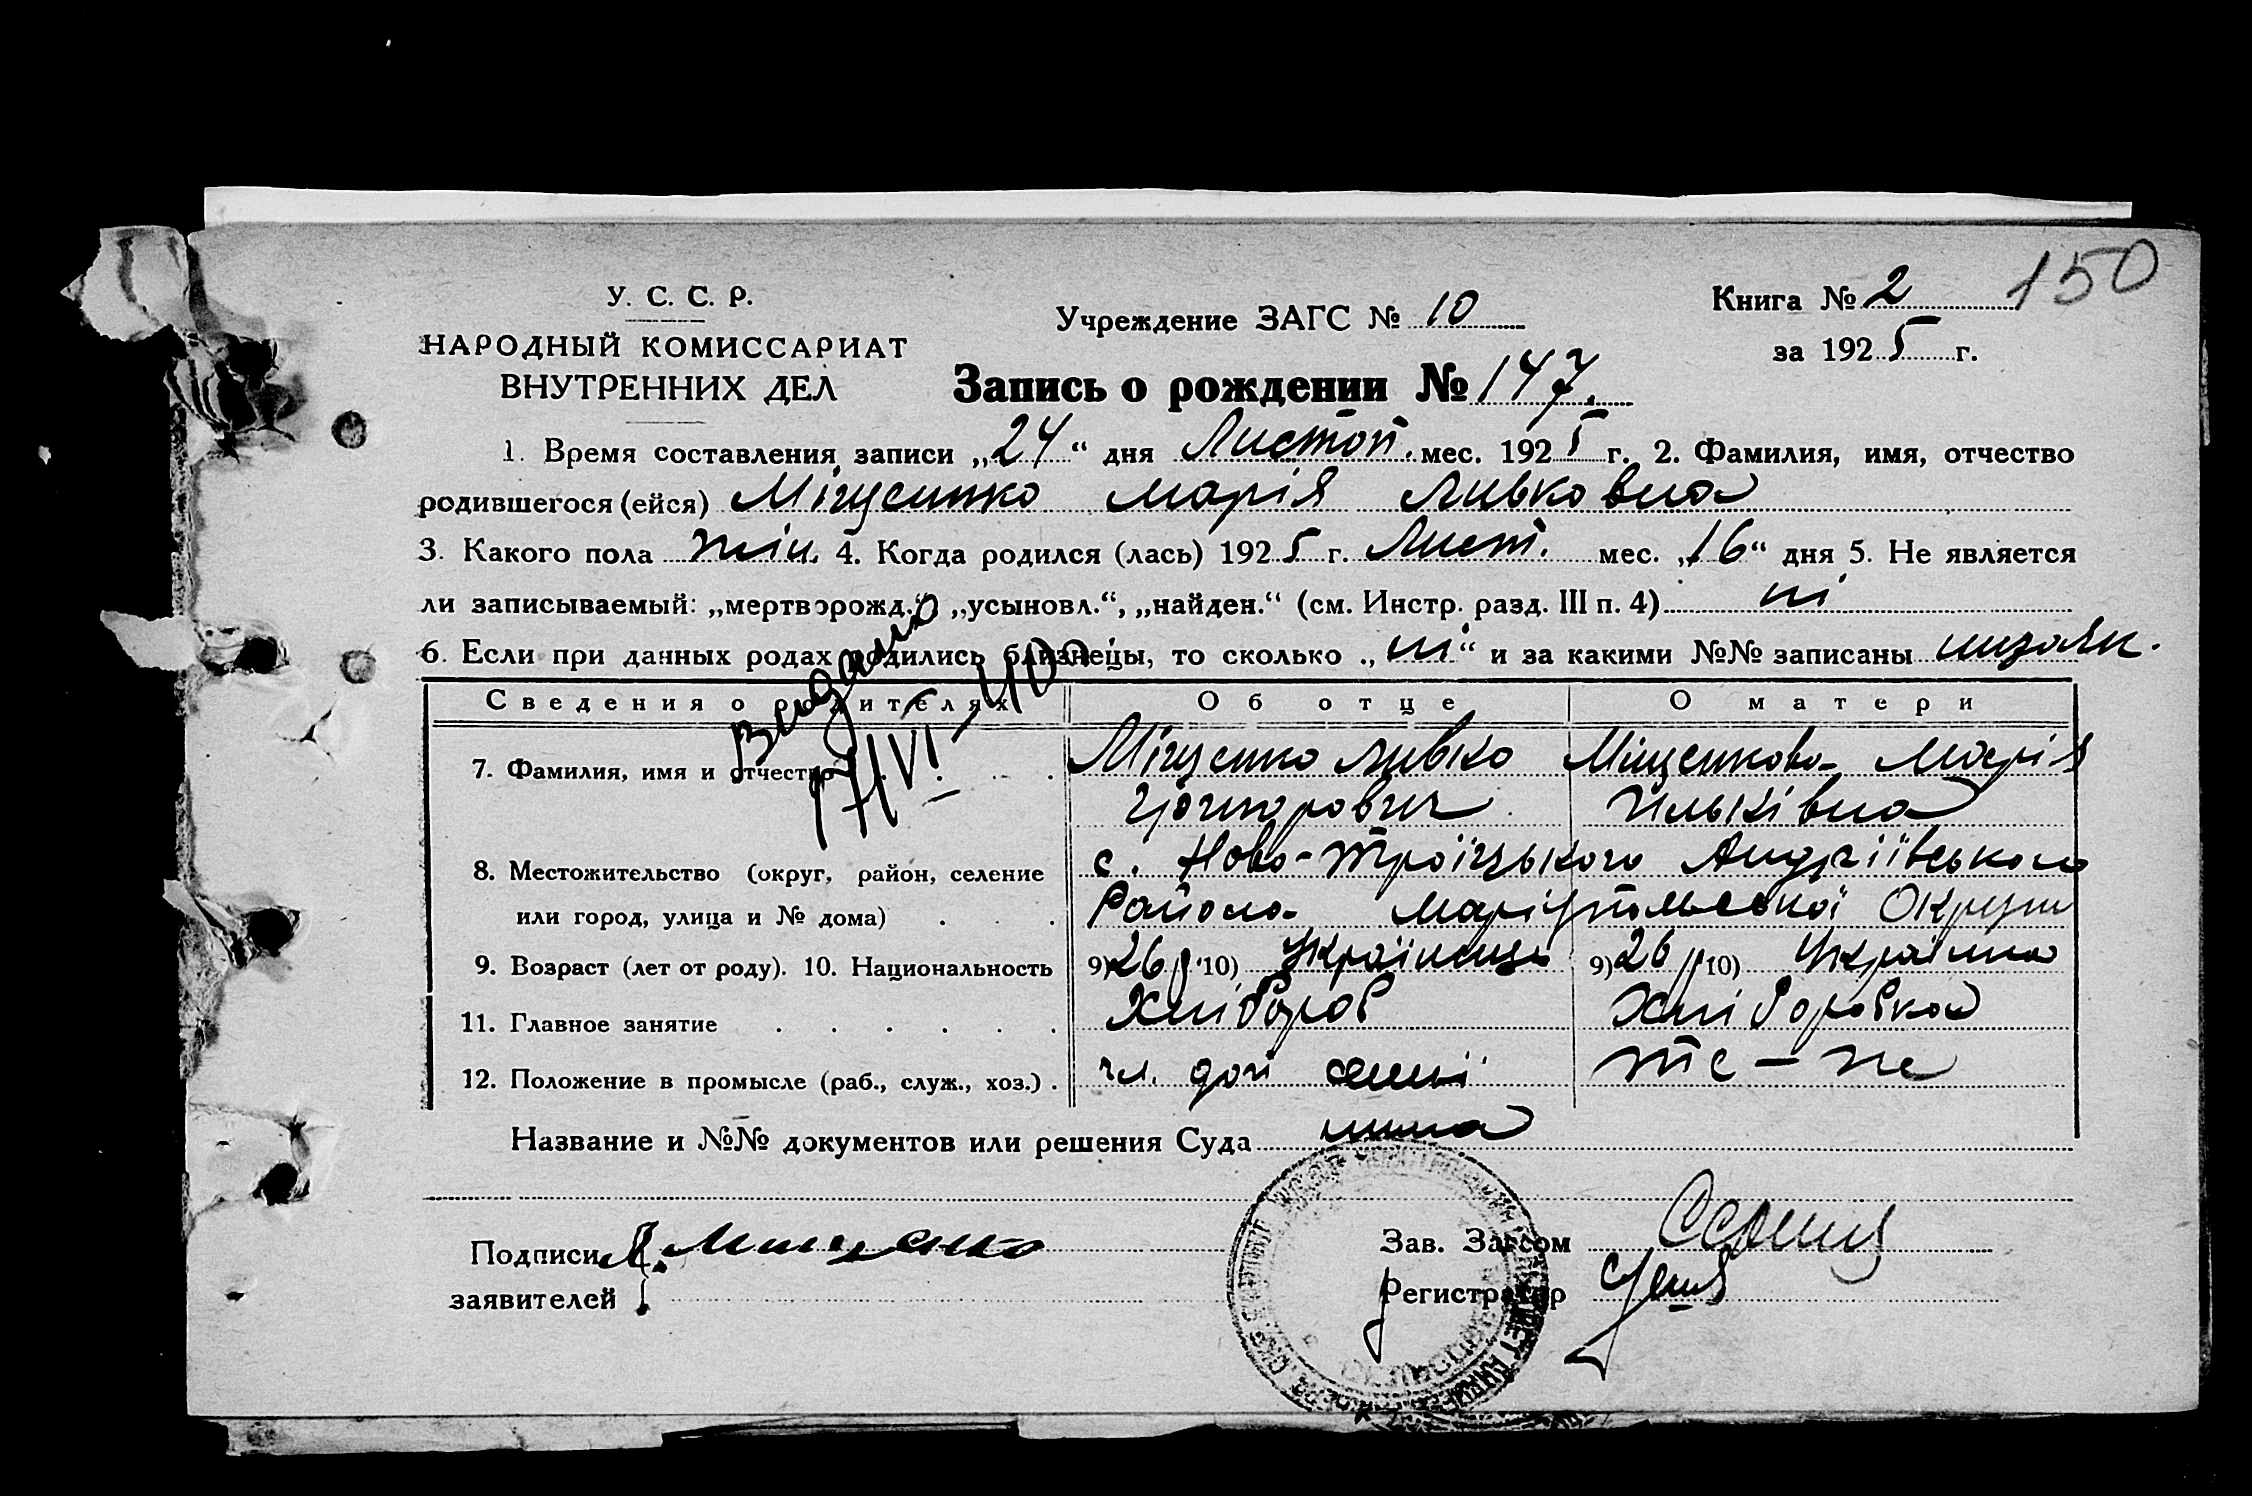 150
У. С. С. Р.
НАРОДНЫЙ КОМИССАРИАТ
ВНУТРЕННИХ ДЕЛ
Учреждение ЗАГС № 10
Книга № 2
за 1925 г.
Запись о рождении № 147.
1. Время составления записи „24“ дня Листоп. мес. 1925 г. 2. Фамилия, имя, отчество
родившегося (ейся) Міщенко Марія Лівковна
3. Какого пола жін. 4. Когда родился (лась) 1925 г. Лист. мес. „16“ дня 5. Не является
ли записываемый: „мертворожд.“, „усыновл.“, „найден.“ (см. Инстр. разд. III п. 4) ні
6. Если при данных родах родились близнецы, то сколько „ні“ и за какими №№ записаны
Видано
17/VI
Сведения о родителях Об отце О матери
7. Фамилия, имя и отчество Міщенко Міщенкова Марія
Ильківна
8. Местожительство (округ, район, селение с. Ново-Троїцького Андріївського
или город, улица и № дома) Району Маріупольської Округи
9. Возраст (лет от роду). 10. Национальность 9) 26 р 10) Українець 9) 26 р 10) Українка
11. Главное занятие Хлібороб Хлібороbка
12. Положение в промысле (раб., служ., хоз.) чл. сімї те-же
Название и №№ документов или решения Суда нема
Подписи Л. Мищенко
заявителей
Зав. Загсом
Регистратор